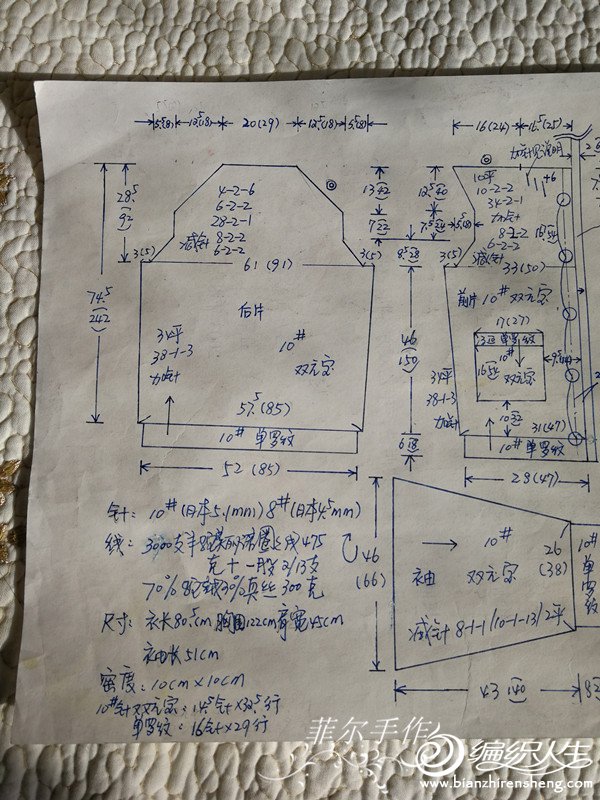 5.5(8) 12.5(18) 20(29) 12.5(18) 5.5(8)
16(24) 16.5(25)
加针见说明
28.5
92
4-2-6
6-2-2
28-2-1
8-2-2
6-2-2
减针
13 42
7 22
3(5) 61(91) 3(5)
12.5 40
7.5 24
8.5 28
5.5(8)
10平
10-2-2
34-2-1
加针
8-2-2
6-2-2
减针
+6
33(50)
74.5
242
后片
10#
双元宝
34平
38-1-3
加针
57.5(85)
10# 单罗纹
52(85)
46
150
6 18
前片 10# 双元宝
17(27)
单罗纹
10#
双元宝
16 54
10 32
34平
38-1-3
加针
31(47)
10# 单罗纹
28(47)
针: 10#(日本5.1mm) 8#(日本4.5mm)
475
克十一股2/13支
300克
尺寸: 衣长80.5cm 胸围122cm 肩宽45cm
袖长51cm
密度: 10cm×10cm
10#针双元宝: 14.5针×32.5行
单罗纹: 16针×29行
46
(66)
袖
10#
双元宝
26
(38)
减针 8-1-1/10-1-13/2平
10#
单罗纹
43 140
菲尔手作
编织人生
www.bianzhirensheng.com